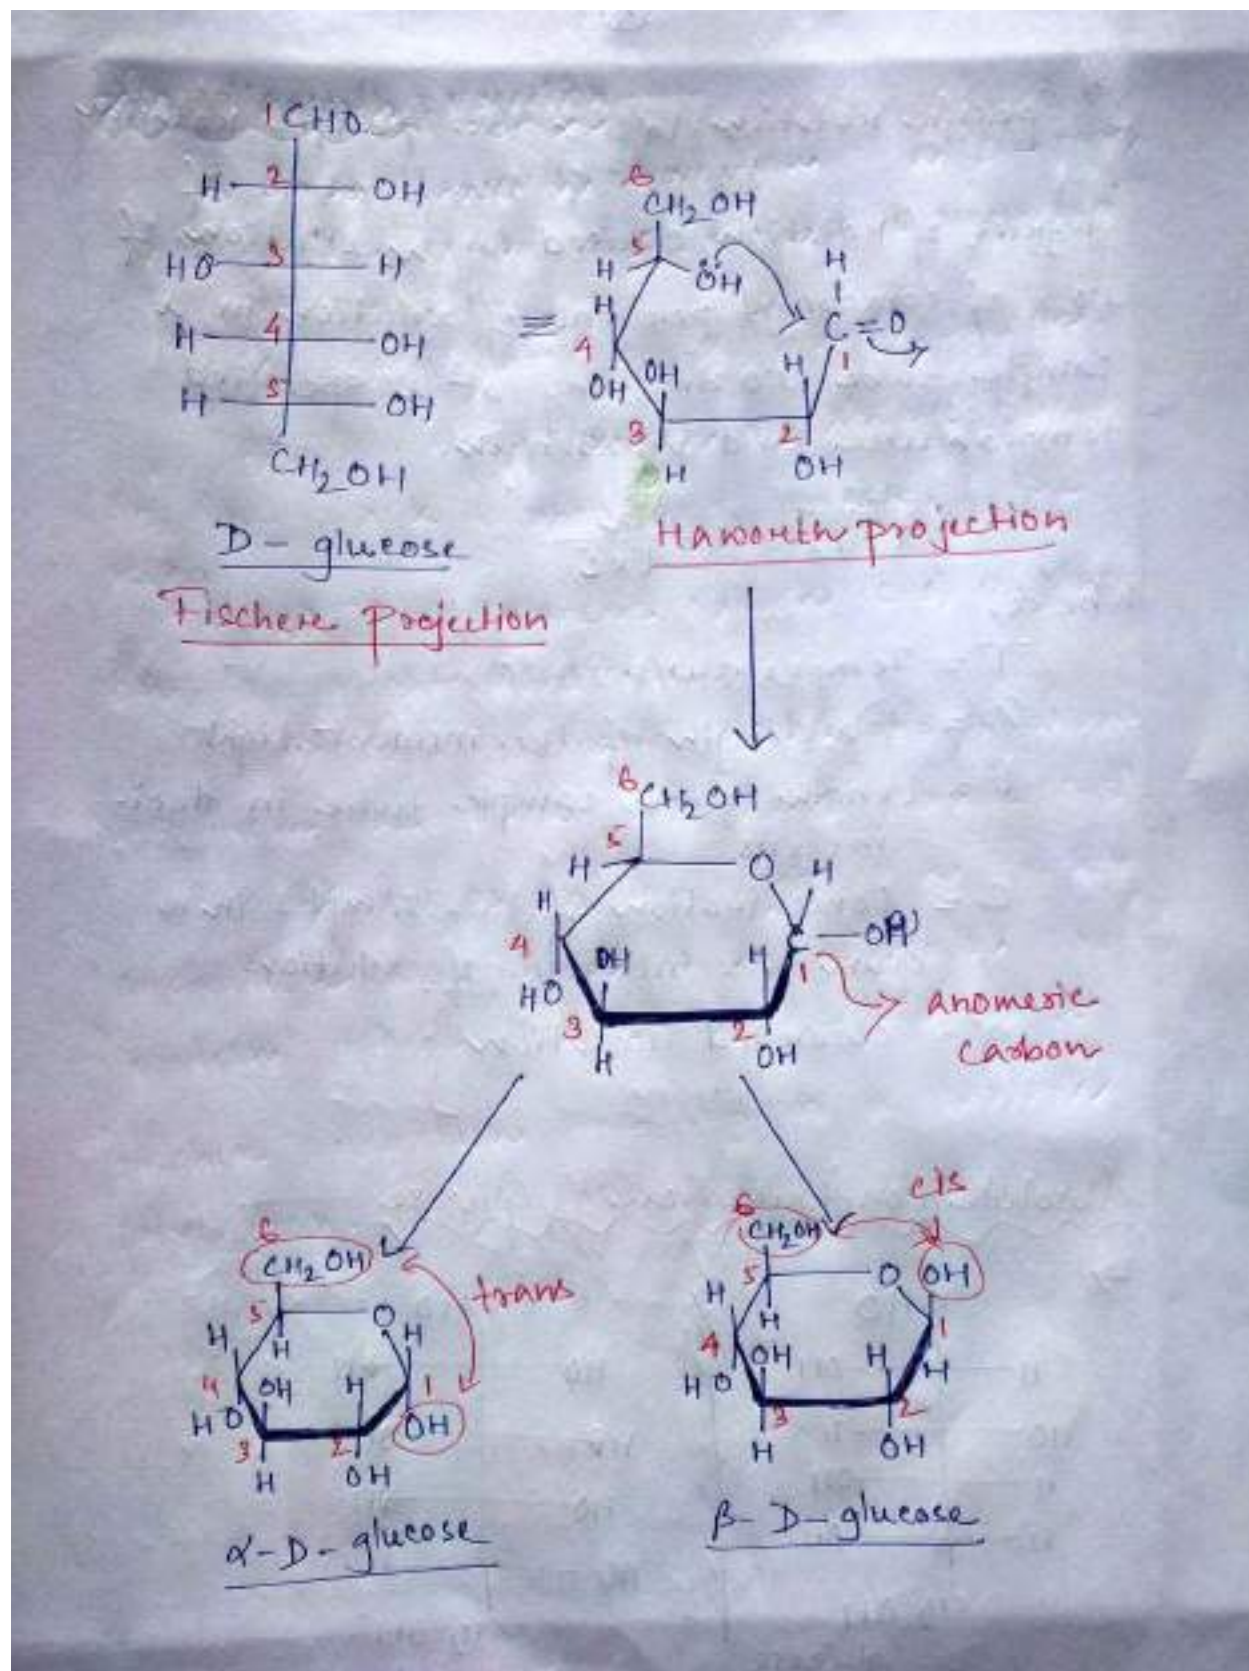 1 CHO
H 2 OH
HO 3 H
H 4 OH
H 5 OH
CH2OH
D - glucose
Fischere Projection
≡
6
CH2OH
5
H ÖH
H
4
OH OH
3
H
H
C=O
1
H
2
OH
Haworth projection
6
CH2OH
5
H O H
H
4
HO
OH
3
H
H
2
OH
C
1
anomeric
carbon
6
CH2OH
trans
5
H
O
H
H
4
HO
OH
3
H
H
2
OH
1
OH
α-D-glucose
cis
6
CH2OH
5
H
O
OH
H
4
HO
OH
3
H
H
2
OH
1
H
β-D-glucose